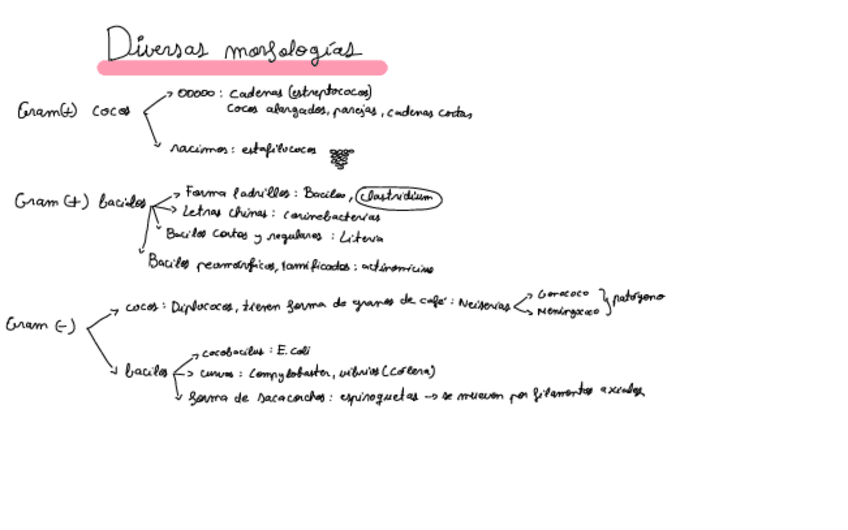 Diversas morfologías
Gram(+) cocos
00000 : cadenas (estreptococos)
cocos alargados, parejas, cadenas cortas
racimos : estafilococos
Gram (+) bacilos
Forma ladrillos : Bacilos, Clostridium
Letras chinas : corinebacterias
Bacilos cortos y regulares : Listeria
Bacilos peomórficos, ramificados : actinomicino
Gram (-)
cocos : Diplococos, tienen forma de granos de café : Neisserias
Gonococo
Meningococo
patógeno
bacilos
cocobacilus : E. coli
curvos : Campylobacter, vibrios (colera)
forma de sacacorchos : espiroquetas → se mueven por filamentos axiales